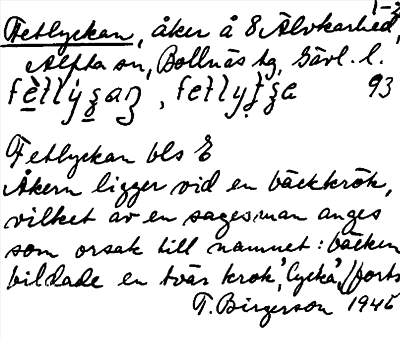 1-2
Fetlyckan, åker å 8 Älvkarhed,
Alfta sn, Bollnäs tg, Gävl. l.
93
Fetlyckan bls E
Åkern ligger vid en bäckkrök,
vilket av en sagesman anges
som orsak till namnet: bäcken
bildade en tvär krok, 'lycka', /forts
T. Birgerson 1946